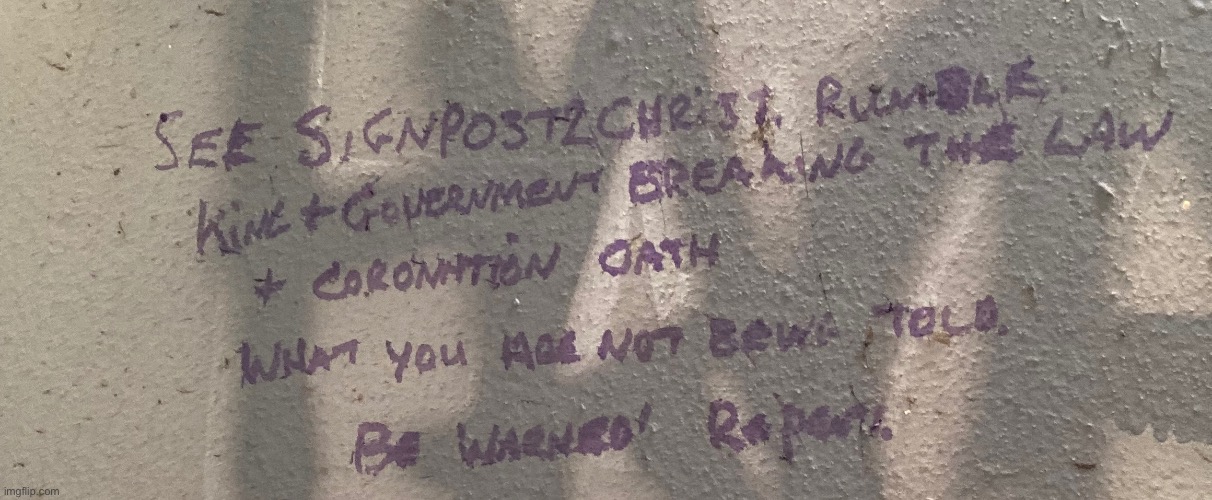 SEE SIGNPOST2CHRIST. RUMBLE.
KING + GOVERNMENT BREAKING THE LAW
+ CORONATION OATH
WHAT YOU ARE NOT BEING TOLD.
BE WARNED! Repent.
imgflip.com